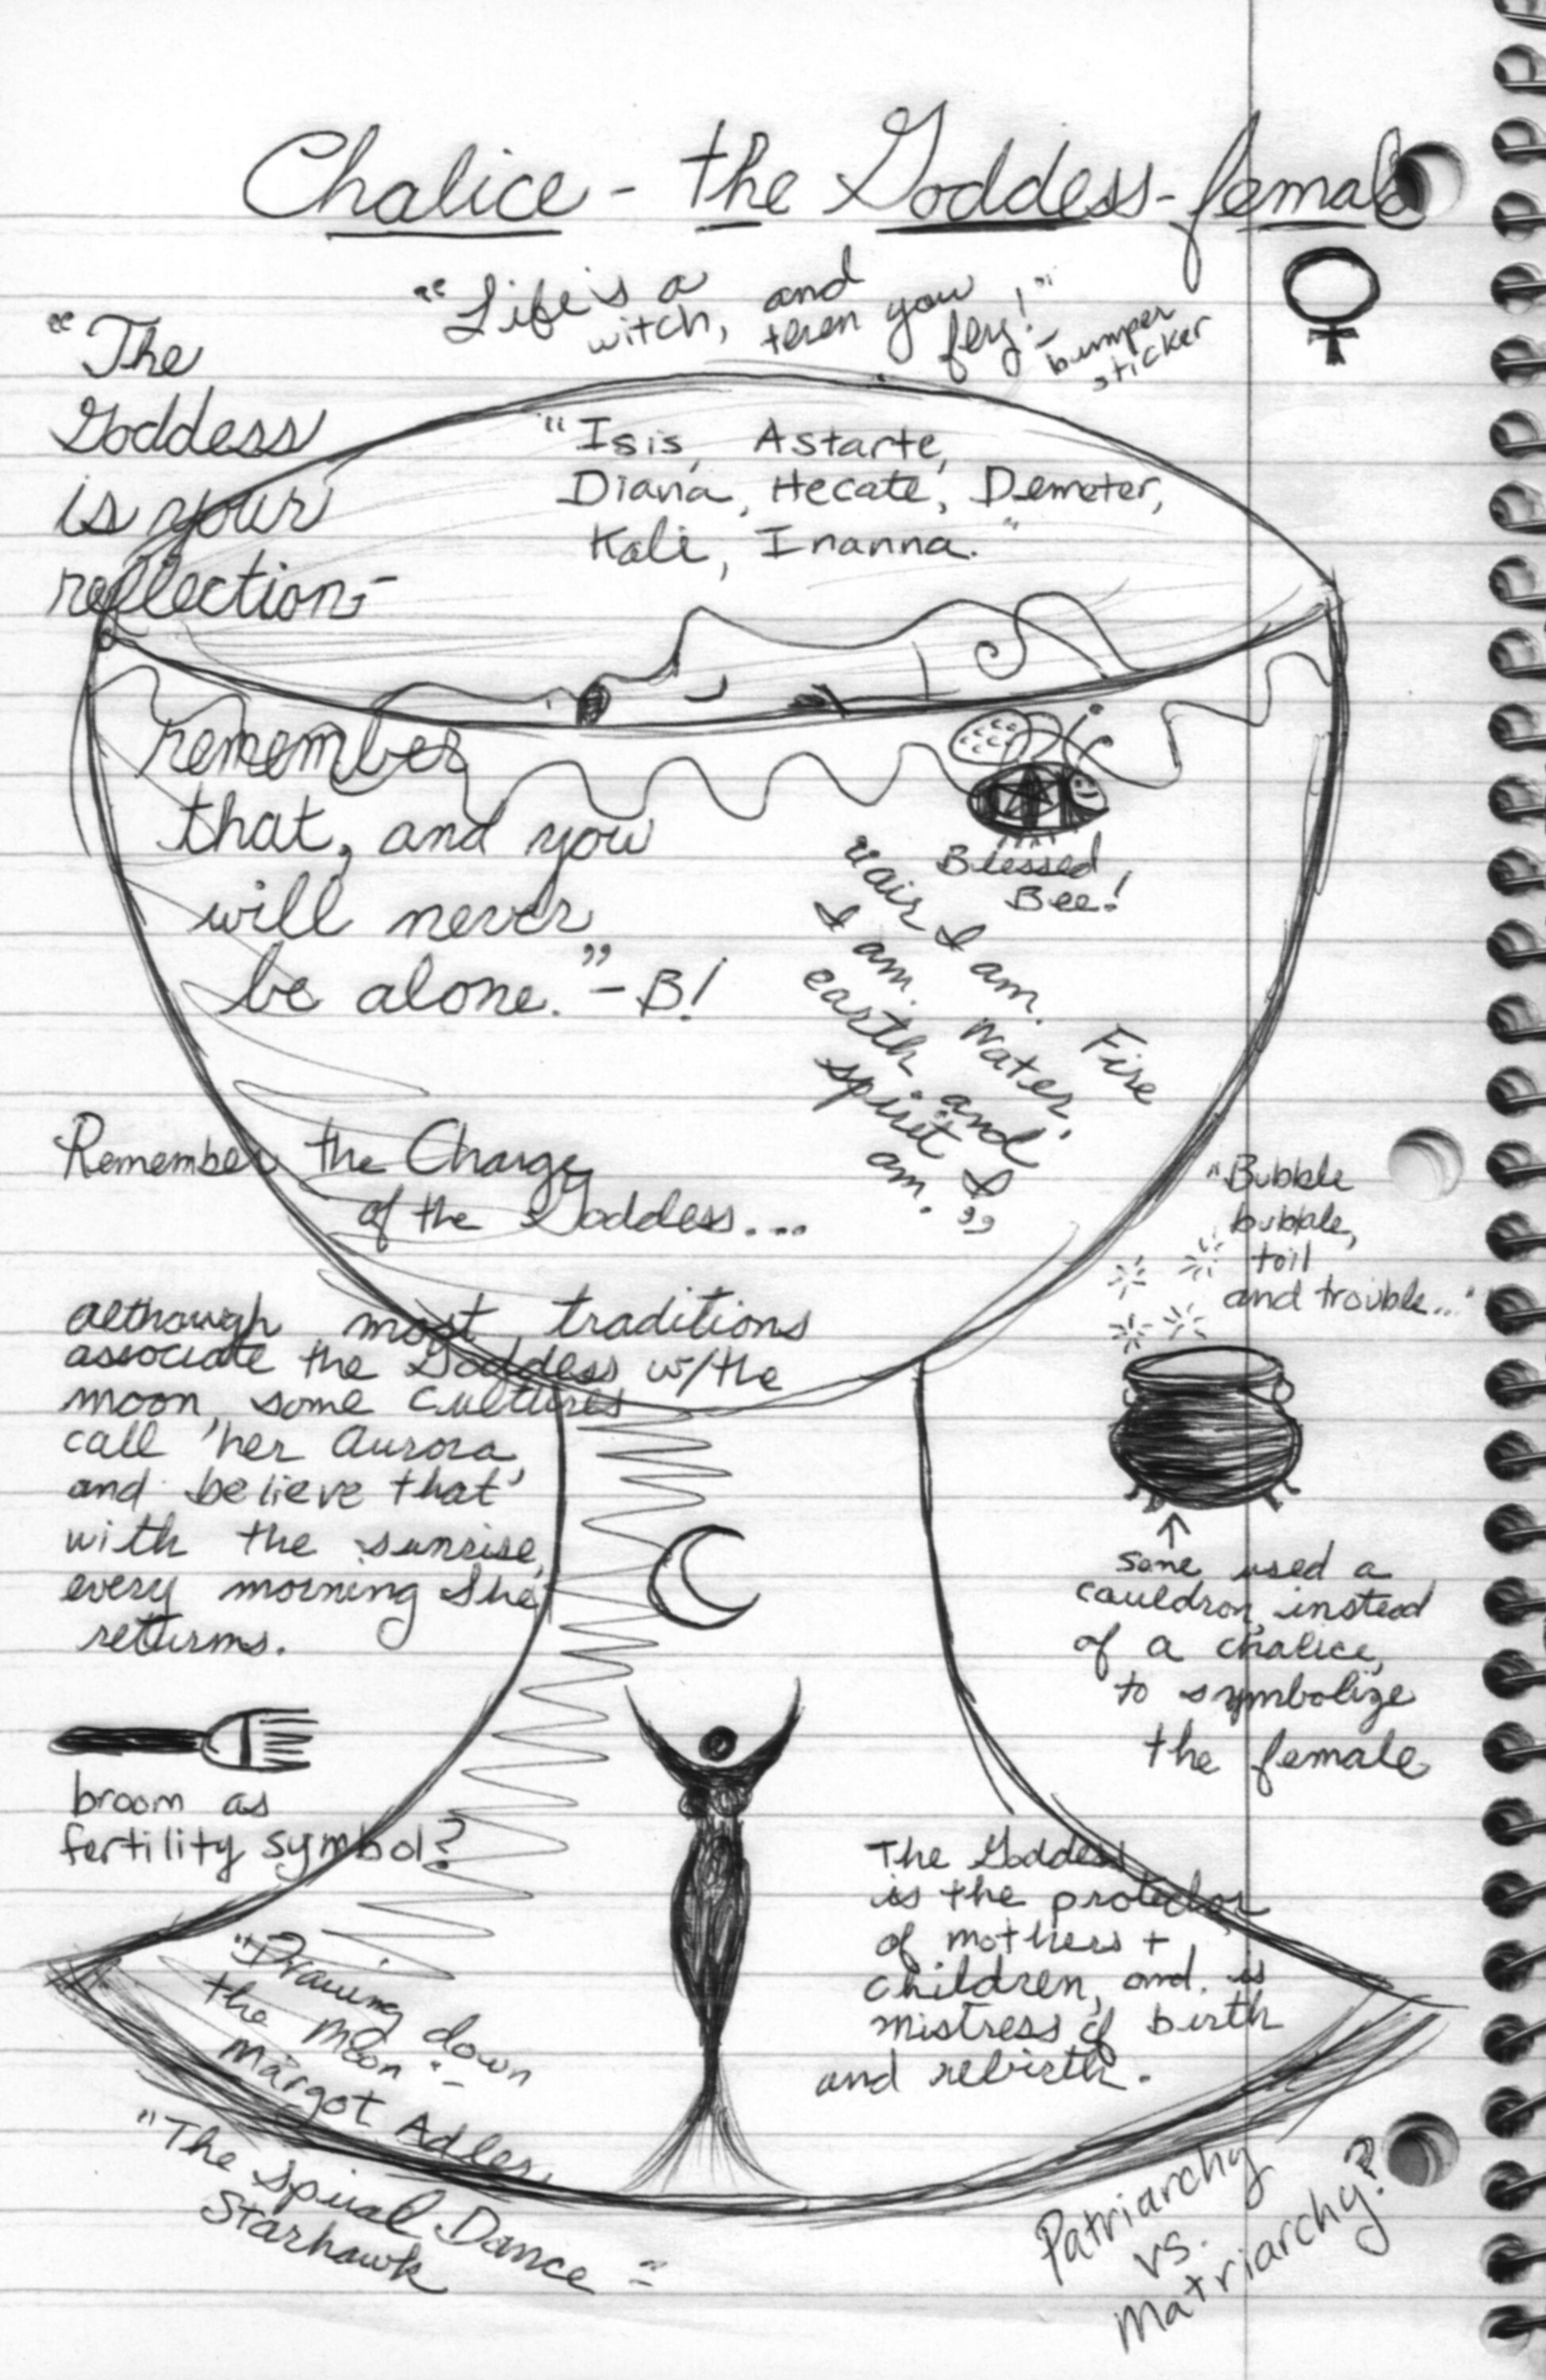 Chalice - the Goddess - female
"Life's a witch, and then you fly!" -
bumper
sticker
"The
Goddess
is your
reflection-
remember
that, and you
will never
be alone." - B!
"Isis, Astarte,
Diana, Hecate, Demeter,
Kali, Inanna."
Blessed
Bee!
"air I am. Fire
I am. Water,
earth and
spirit I
am."
Remember the Charge
of the Goddess....
"Bubble
bubble,
toil
and trouble..."
although most traditions
associate the Goddess w/the
moon, some cultures
call her Aurora,
and believe that
with the sunrise,
every morning She
returns.
some used a
cauldron, instead
of a chalice,
to symbolize
the female
broom as
fertility symbol?
The Goddess
is the protector
of mothers +
children, and is
mistress of birth
and rebirth.
"Drawing down
the Moon" -
Margot Adler
"The Spiral Dance" -
Starhawk
Patriarchy
vs.
Matriarchy?